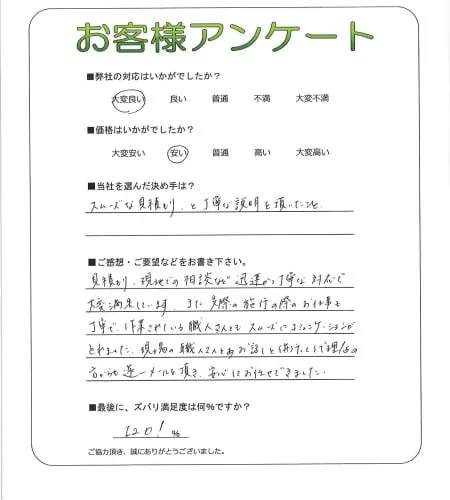 お客様アンケート
■弊社の対応はいかがでしたか？
大変良い 良い 普通 不満 大変不満
■価格はいかがでしたか？
大変安い 安い 普通 高い 大変高い
■当社を選んだ決め手は？
スムーズな見積もり、と丁寧な説明を頂いたこと
■ご感想・ご要望などをお書き下さい。
見積もり、現地での相談など迅速かつ丁寧な対応で
大変満足しています。また実際の施行の際のお仕事も
丁寧で、作業されている職人さんともスムーズにコミュニケーションが
とれました。現場の職人さんとのお話しと併行して
の方からも逐一メールを頂き、安心してお任せできました。
■最後に、ズバリ満足度は何%ですか？
120! %
ご協力頂き、誠にありがとうございました。